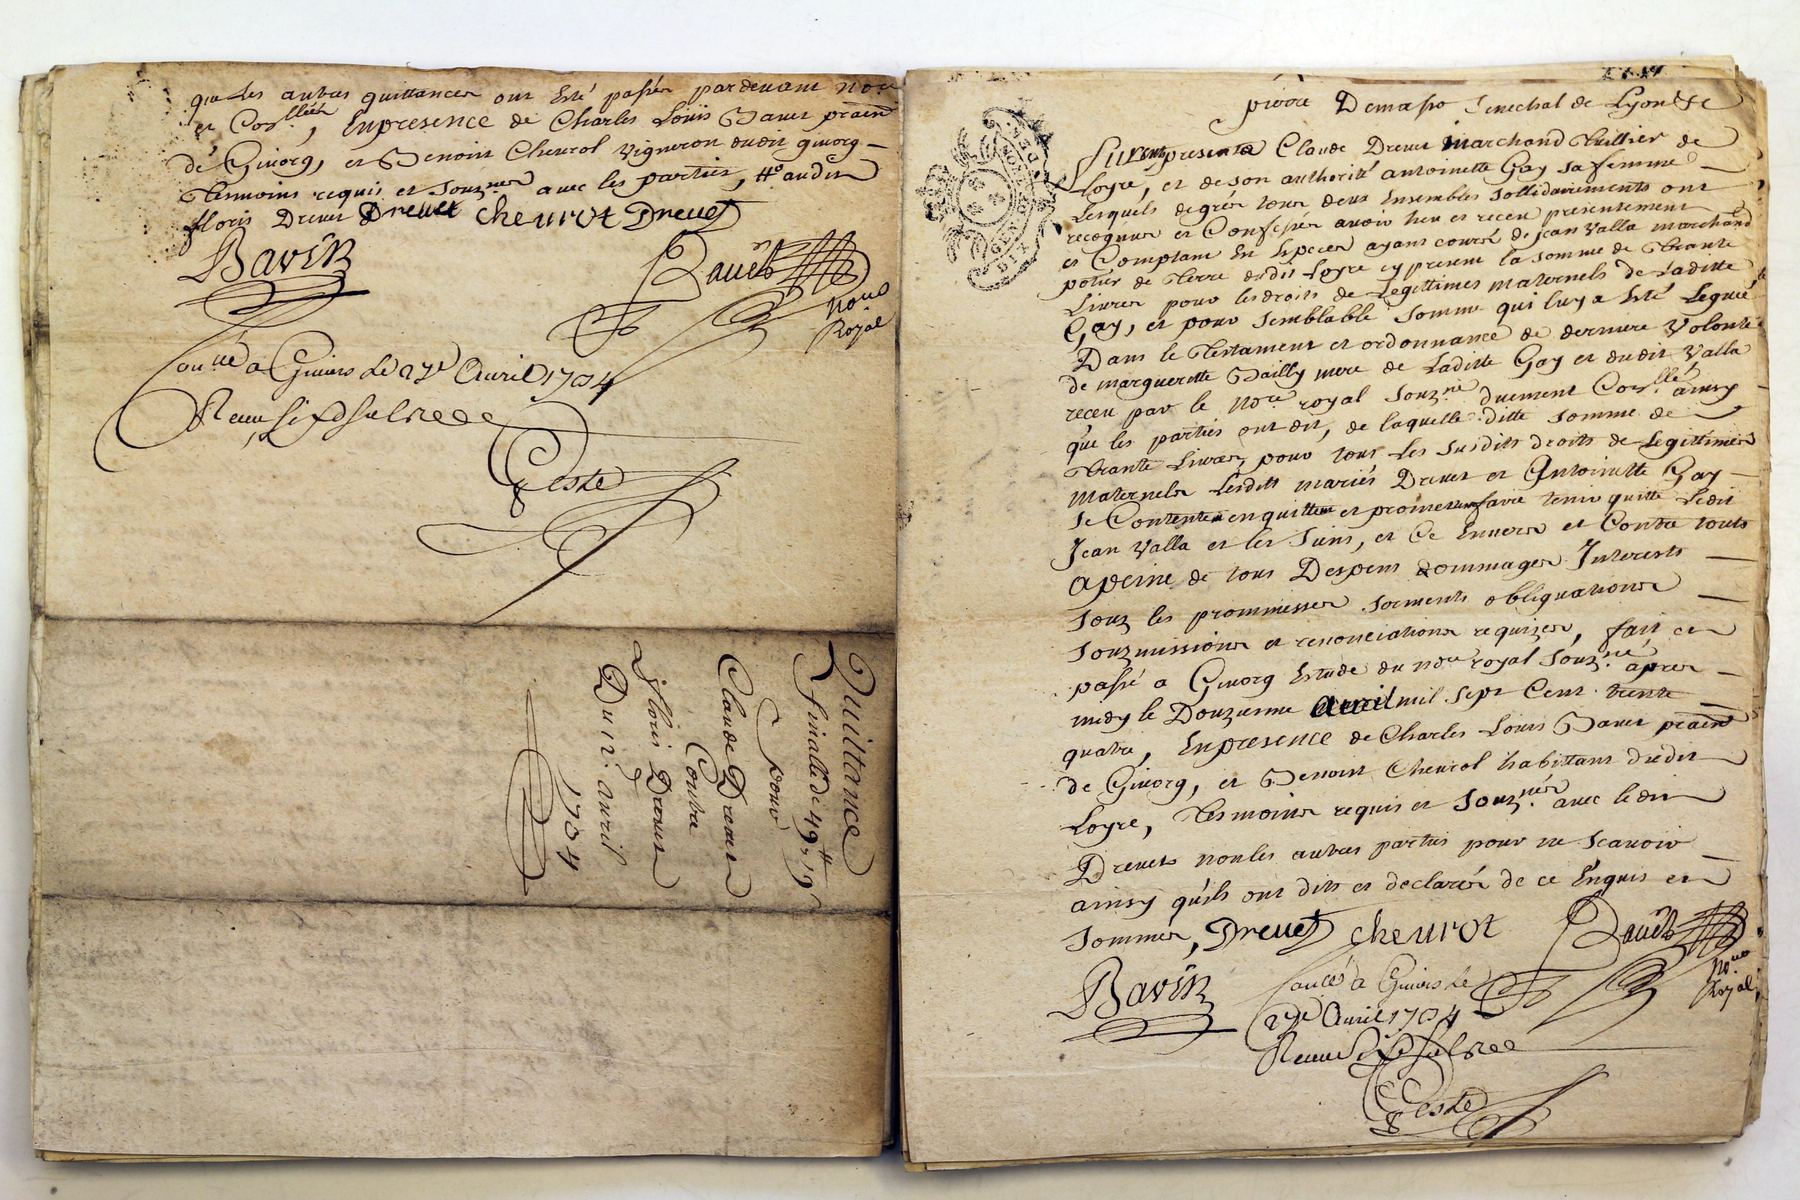 que les autres quittances ont esté passées pardevant no.re
et Con.lléés, En presence de Charles Loüis Bavet praěn
de Givorg, et Benoist Chevrol vigneron dudit givorg
Tesmoins requis et Souz.nés avec les parties, # audit
floris Drevet Drevet Chevrot Drevet
Bavět
Bavět No.re
Royal
Con.llé a Givors le 27e Avril 1734
Receu Six s
Teste
Quittance
finalle de 49 # 19 s
pour
Claude Drevet
Contre
floris Drevet
Du 12e avril
1734
DE LYON
pierre Demaso Senechal de Lyon
furent presents Claude Drevet Marchand Thuillier de
Loyre, et de son authorité antoinette Gay sa femme
Lesquels de gré tous deux Ensembles Sollidairements ont
recognus et Confessés avoir heu et receu presentement
et Comptant En Especes ayans cours de Jean Valla marchand
potier de Terre dudit Loyre cy present la somme de Trante
Livres pour les droits de Legittimes maternels de Laditte
Gay, et pour Semblable Somme qui luy a Esté Leguée
Dans le Testament et ordonnance de derniere Volonté
de margueritte Bailly mere de Laditte Gay et dudit Valla
receu par le No.re royal Souz.né duement Con.llé ainsy
que les parties ont dit, de laquelle ditte Somme de
Trante Livres, pour tous les Susdits droits de Legittimes
Maternels Lesdits mariés Drevet et Antoinette Gay
Se Contentent en quittent et promettent faire tenir quitte Ledit
Jean Valla et les Siens, et Ce Envers et Contre touts
apeine de tous Despens dommages Interests
Souz les prommesses Serments obliguations
Souzmissions et renonciations requizes, fait et
passé a Givorg Estude du no.re royal Souz.né apres
midy le Douzieme avril mil Sept Cent trente
quatre, En presence de Charles Louis Bavet praěn
de Givorg, et Benoist Chevrol habittant dudit
Loyre, Tesmoins requis et Souz.nés avec ledit
Drevet non les autres parties pour ne Scavoir
ainsy qu'ils ont dits et declarés de ce Enquis et
Sommés, Drevet Chevrot Bavět
No.re
Royal
Bavět Con.llé a Givors le
27e Avril 1734
Receu Six s
Teste